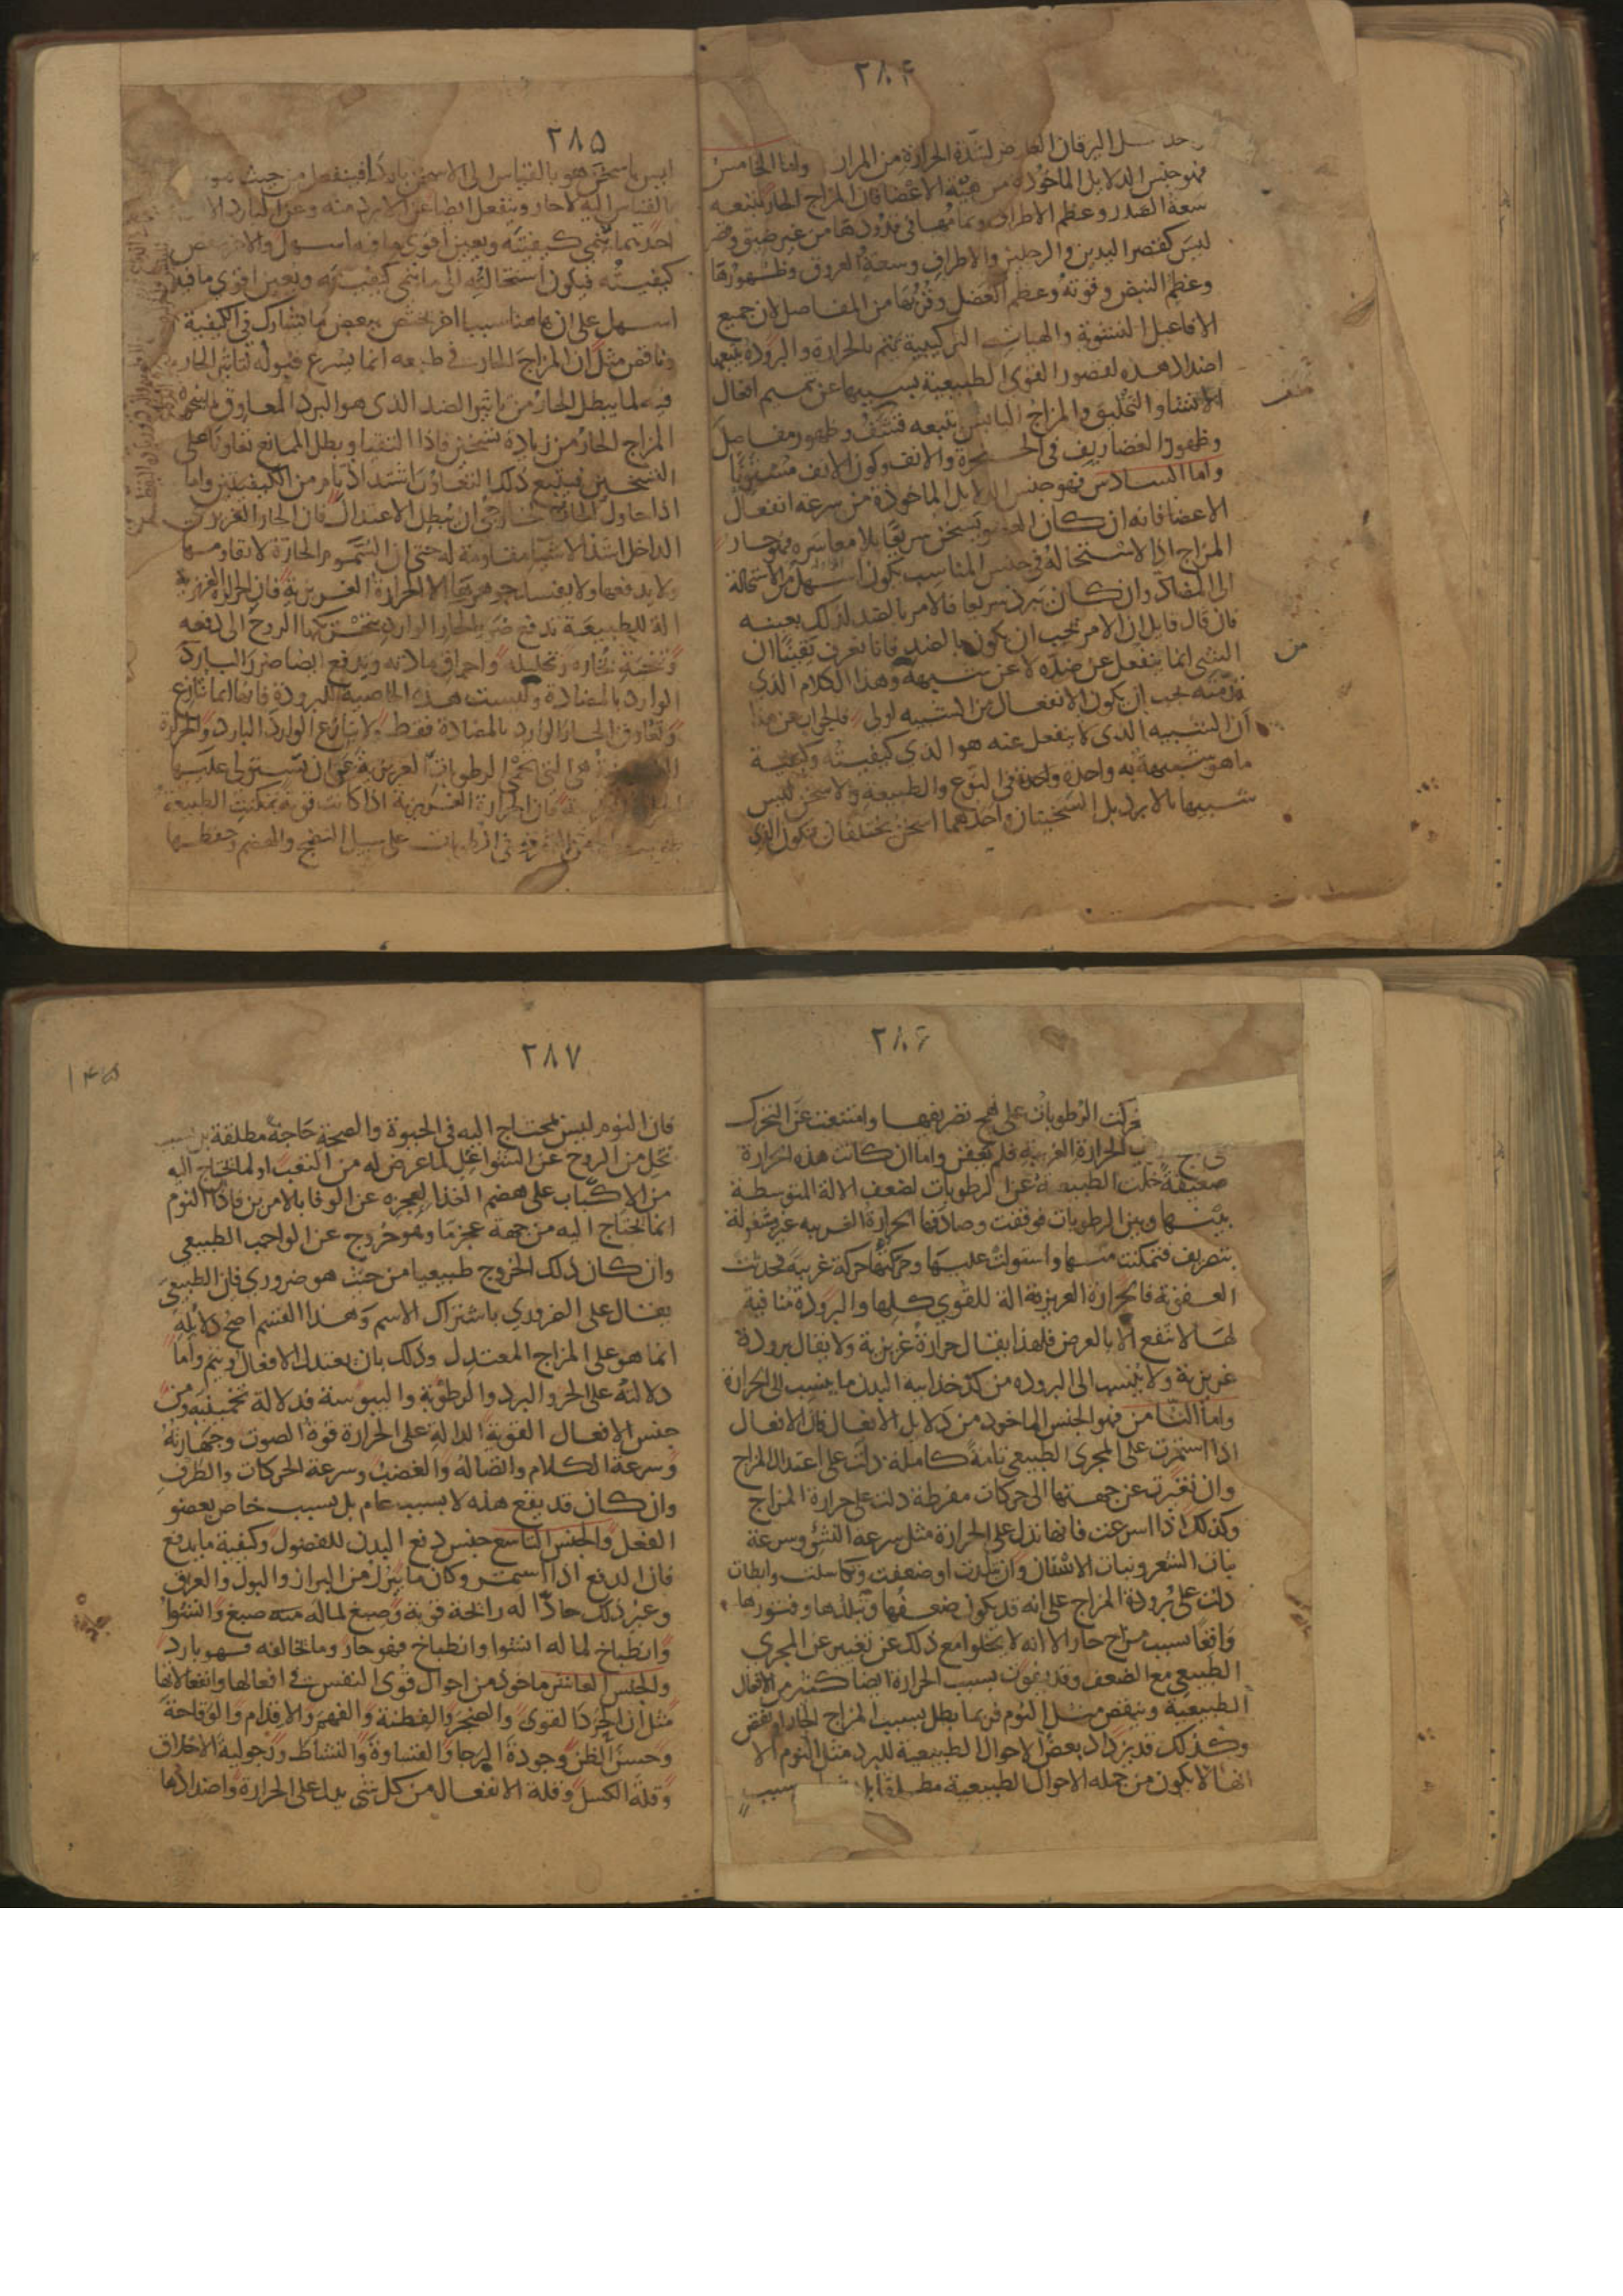 ٢٨٤
العارض لشدة الحرارة من المرار واما الخامس
فهو جنس الدلايل الماخوذة من هيئة الاعضا فان المزاج الحار يتبعه
سعة الصدر وعظم الاطراف وتمامها في قدودها من غير ضيق وقصر
ليس كقصر اليدين والرجلين والاطراف وسعة العروق وظهورها
وعظم النبض وقوته وعظم العضل وقربها من المفاصل لان جميع
الافاعيل النشوية والهيات التركيبية تتم بالحرارة والبرودة يتبعها
اضداد هذه لقصور القوى الطبيعية بسببها عن تتميم افعال
الانشا والتخليق والمزاج اليابس يتبعه قشف وظهور مفاصل
وظهور الغضاريف في الحنجرة والانف وكون الانف مستويا
واما السادس فهو جنس الدلايل الماخوذة من سرعة انفعال
الاعضا فانه ان كان العضو يسخن سريعا بلا معاسرة فهو حار
المزاج اذ الاستحالة في جنس المناسب تكون اسهل من الاستحالة
الى المضاد وان كان يبرد سريعا فالامر بالضد لذلك بعينه
فان قال قايل ان الامر يجب ان يكون بالضد فانا نعرف يقينا ان
الشى انما ينفعل عن ضده لا عن شبيهه وهذا الكلام الذي
قدمته يجب ان يكون الانفعال من الشبيه اولى فالجواب عن هذا
ان الشبيه الذى لا ينفعل عنه هو الذي كيفيته وكيفية
ما هو شبيهه به واحدة واحدة في النوع والطبيعة والاسخن ليس
شبيها بالابرد بل السخينان واحدهما اسخن يختلفان فيكون الذي
من
٢٨٥
ليس باسخن هو بالقياس الى الاسخن باردا فينفعل من حيث هو
بالقياس اليه لا حار وينفعل ايضا عن الابرد منه وعن البارد الا
احدهما ينمي كيفيته ويعين اقوى ما فيه اسهل والاخر ينقص
كيفيته فيكون استحالته الى ما ينمي كيفيته ويعين اقوى ما فيه
اسهل على ان هاهنا سببا اخر يختص ببعض ما يشارك في الكيفية
وناقص مثل ان المزاج الحار في طبعه انما يسرع قبوله لتاثير الحار
فيه لما يبطل الحار من تاثير الضد الذى هو البرد المعاوق لما ينحوه
المزاج الحار من زيادة تسخين فاذا التقيا وبطل المانع تعاونا على
التسخين فيتبع ذلك التعاون اشتداد تام من الكيفيتين واما
اذا حاول الحار الخارجي ان يبطل الاعتدال فان الحار الغريزي
الداخل اشد الاشيا مقاومة له حتى ان السموم الحارة لا يقاومها
ولا يدفعها ولا يفسد جوهرها الا الحرارة الغريزية فان الحرارة الغريزية
الة للطبيعة تدفع ضرر الحار الوارد بتحريكها الروح الى دفعه
وتنحية بخاره وتحليله واحراق مادته ويدفع ايضا ضرر البارد
الوارد بالمضادة وليست هذه الخاصية للبرودة فانها انما تنازع
وتعاوق الحار الوارد بالمضادة فقط ولا ينازع الوارد البارد والحرارة
هى التي تحمي الرطوبات الغريزية عن ان تستولى عليها
فان الحرارة الغريزية اذا كانت قوية تمكنت الطبيعة
التصرف في الرطوبات على سبيل النضج والهضم وحفظها
٢٨٦
فتحركت الرطوبات على نهج تصريفها وامتنعت عن التحرك
الحرارة الغريبة فلم تعفن واما ان كانت هذه الحرارة
ضعيفة خلت الطبيعة عن الرطوبات لضعف الالة المتوسطة
بينها وبين الرطوبات فوقفت وصادفها الحرارة الغريبة غير مشغولة
بتصريف فتمكنت منها واستولت عليها وحركتها حركة غريبة فحدثت
العفونة فالحرارة الغريزية الة للقوى كلها والبرودة منافية
لها لا تنفع الا بالعرض فلهذا يقال حرارة غريزية ولا يقال برودة
غريزية ولا ينسب الى البروده من كدخداييه البدن ما ينسب الى الحرارة
واما الثامن فهو الجنس الماخوذ من دلايل الافعال فان الافعال
اذا استمرت على المجرى الطبيعي تامة كاملة دلت على اعتدال المزاج
وان تغيرت عن جهتها الى حركات مفرطة دلت على حرارة المزاج
وكذلك اذا اسرعت فانها تدل على الحرارة مثل سرعة النشو وسرعة
نبات الشعر ونبات الاسنان وان تبلدت او ضعفت وتكاسلت وابطات
دلت على برودة المزاج على انه قد يكون ضعفها وتبلدها وفتورها
واقعا بسبب مزاج حار الا انه لا يخلوا مع ذلك عن تغيير عن المجرى
الطبيعي مع الضعف وقد يفوت بسبب الحرارة ايضا كثير من الافعال
الطبيعية وينقص مثل النوم فربما بطل بسبب المزاج الحار او نقص
وكذلك قد يزداد بعض الاحوال الطبيعية للبرد مثل النوم الا
انها لا يكون من جمله الاحوال الطبيعية مطلقا بل بسبب
٢٨٧
١٤٥
فان النوم ليس يحتاج اليه في الحيوة والصحة حاجة مطلقة بل بسبب
تخل من الروح عن الشواغل لما عرض له من التعب او لما يحتاج اليه
من الاكباب على هضم الغذا لعجزه عن الوفا بالامرين فاذا النوم
انما يحتاج اليه من جهة عجز ما وهو خروج عن الواجب الطبيعي
وان كان ذلك الخروج طبيعيا من حيث هو ضروري فان الطبيعى
يقال على الضروري باشتراك الاسم وهذا القسم اصح دلايله
انما هو على المزاج المعتدل وذلك بان يعتدل الافعال ويتم واما
دلالته على الحر والبرد والرطوبة واليبوسة فدلالة تخمينية ومن
جنس الافعال القوية الدالة على الحرارة قوة الصوت وجهارته
وسرعة الكلام واتصاله والغضب وسرعة الحركات والطرف
وان كان قد يقع هذه لا بسبب عام بل بسبب خاص بعضو
الفعل والجنس التاسع جنس دفع البدن للفضول وكيفية ما يدفع
فان الدفع اذا استمر وكان ما يبرز من البراز والبول والعرق
وغير ذلك حادا له رايحة قوية وصبغ لماله منه صبغ وانشوا
وانطباخ لما له انشوا وانطباخ فهو حار وما يخالفه فهو بارد
والجنس العاشر ماخوذ من احوال قوى النفس في افعالها وانفعالاتها
مثل ان الحرد القوى والضجر والفطنة والفهم والاقدام والوقاحة
وحسن الظن وجودة الرجا والقساوة والنشاط ورجولية الاخلاق
وقلة الكسل وقلة الانفعال من كل شى يدل على الحرارة واضدادها